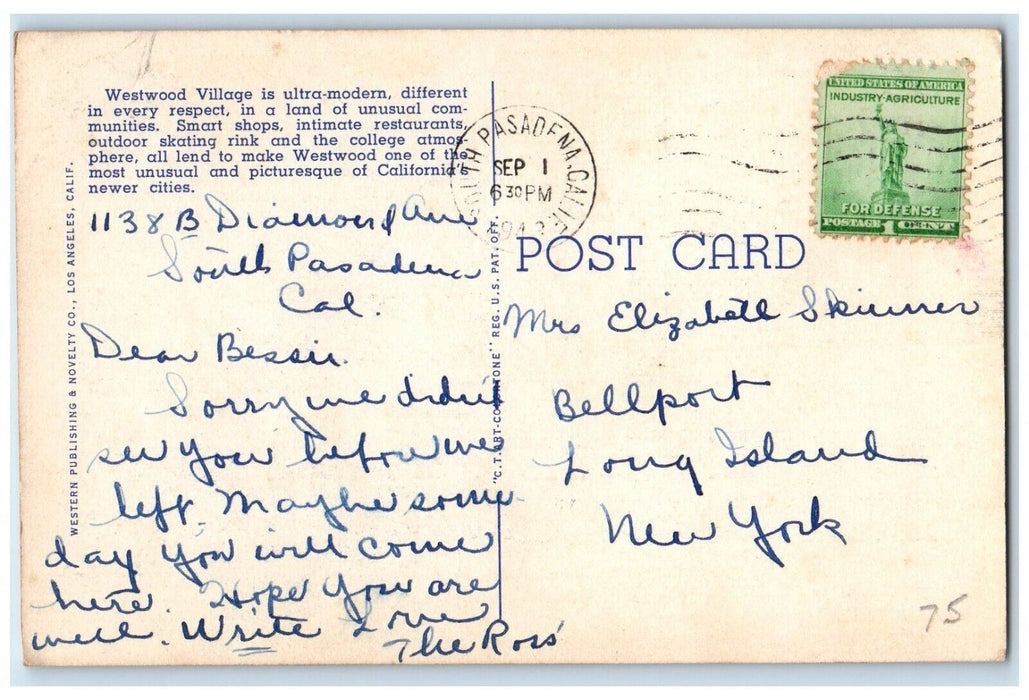 Westwood Village is ultra-modern, different
in every respect, in a land of unusual com-
munities. Smart shops, intimate restaurants,
outdoor skating rink and the college atmos-
phere, all lend to make Westwood one of the
most unusual and picturesque of California's
newer cities.
WESTERN PUBLISHING & NOVELTY CO., LOS ANGELES, CALIF.
1138 B Diamond Ave
South Pasadena
Cal.
Dear Bessie.
Sorry we didn't
see you before we
left. Maybe some
day you will come
here. Hope you are
well. Write Love
The Ross'
"C.T. ART-COLORTONE" REG. U.S. PAT. OFF.
SOUTH PASADENA, CALIF.
SEP 1
6 30 PM
POST CARD
UNITED STATES OF AMERICA
INDUSTRY-AGRICULTURE
FOR DEFENSE
POSTAGE 1 CENT
Mrs Elizabeth Skinner
Bellport
Long Island
New York
75